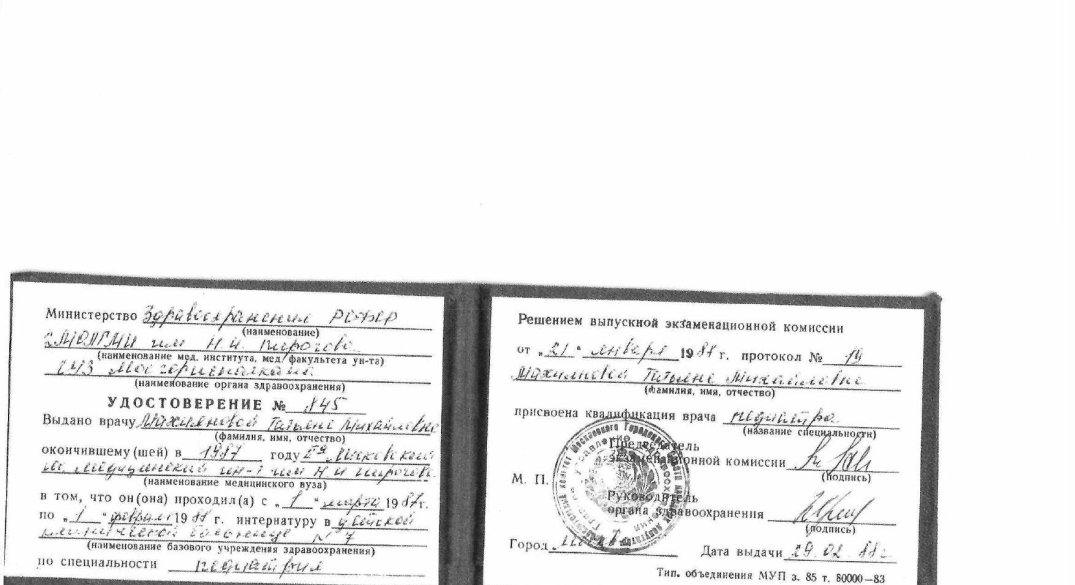 Министерство Здравоохранения РСФСР
(наименование)
2 МОЛГМИ им Н.И. Пирогова
(наименование мед. института, мед. факультета ун-та)
ГУЗ Мосгорисполкома
(наименование органа здравоохранения)
УДОСТОВЕРЕНИЕ № 845
Выдано врачу Татьяне Михайловне
(фамилия, имя, отчество)
окончившему (шей) в 1987 году Московский
медицинский ин-т им Н И Пирогова
(наименование медицинского вуза)
в том, что он(она) проходил(а) с „1“ марта 1987г.
по „1“ февраля 1988 г. интернатуру в детской
клинической больнице № 7
(наименование базового учреждения здравоохранения)
по специальности педиатрия
Решением выпускной экзаменационной комиссии
от „21“ января 1988 г. протокол № 19
Татьяне Михайловне
(фамилия, имя, отчество)
присвоена квалификация врача педиатра
(название специальности)
Председатель
экзаменационной комиссии
(подпись)
М. П.
Руководитель
органа здравоохранения
(подпись)
Город Москва Дата выдачи 29.02.88г.
Тип. объединения МУП з. 85 т. 80000—83